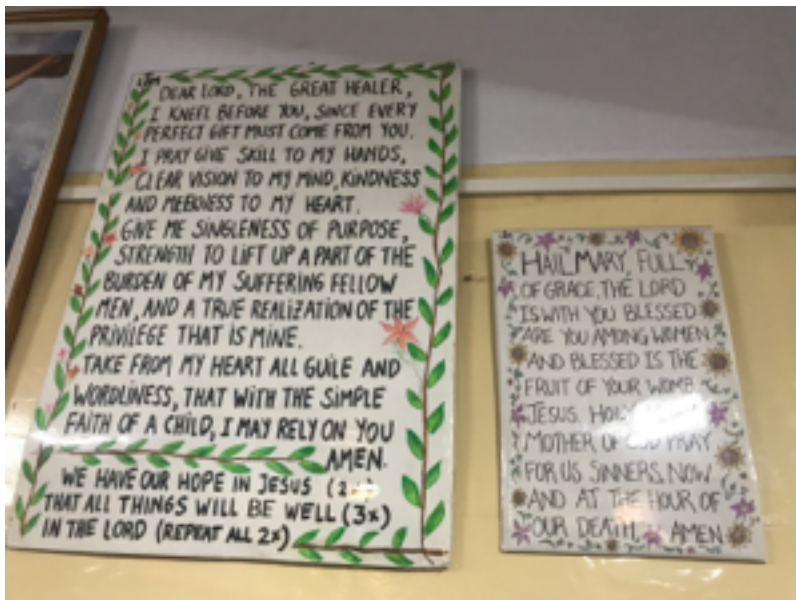 DEAR LORD, THE GREAT HEALER,
I KNEEL BEFORE YOU, SINCE EVERY
PERFECT GIFT MUST COME FROM YOU.
I PRAY GIVE SKILL TO MY HANDS,
CLEAR VISION TO MY MIND, KINDNESS
AND MEEKNESS TO MY HEART.
GIVE ME SINGLENESS OF PURPOSE,
STRENGTH TO LIFT UP A PART OF THE
BURDEN OF MY SUFFERING FELLOW
MEN, AND A TRUE REALIZATION OF THE
PRIVILEGE THAT IS MINE.
TAKE FROM MY HEART ALL GUILE AND
WORDLINESS, THAT WITH THE SIMPLE
FAITH OF A CHILD, I MAY RELY ON YOU
AMEN.
WE HAVE OUR HOPE IN JESUS (2
THAT ALL THINGS WILL BE WELL (3x)
IN THE LORD (REPEAT ALL 2x)
HAIL MARY, FULL
OF GRACE, THE LORD
IS WITH YOU BLESSED
ARE YOU AMONG WOMEN
AND BLESSED IS THE
FRUIT OF YOUR WOMB
JESUS. HOLY
MOTHER OF GOD PRAY
FOR US SINNERS, NOW
AND AT THE HOUR OF
OUR DEATH. AMEN